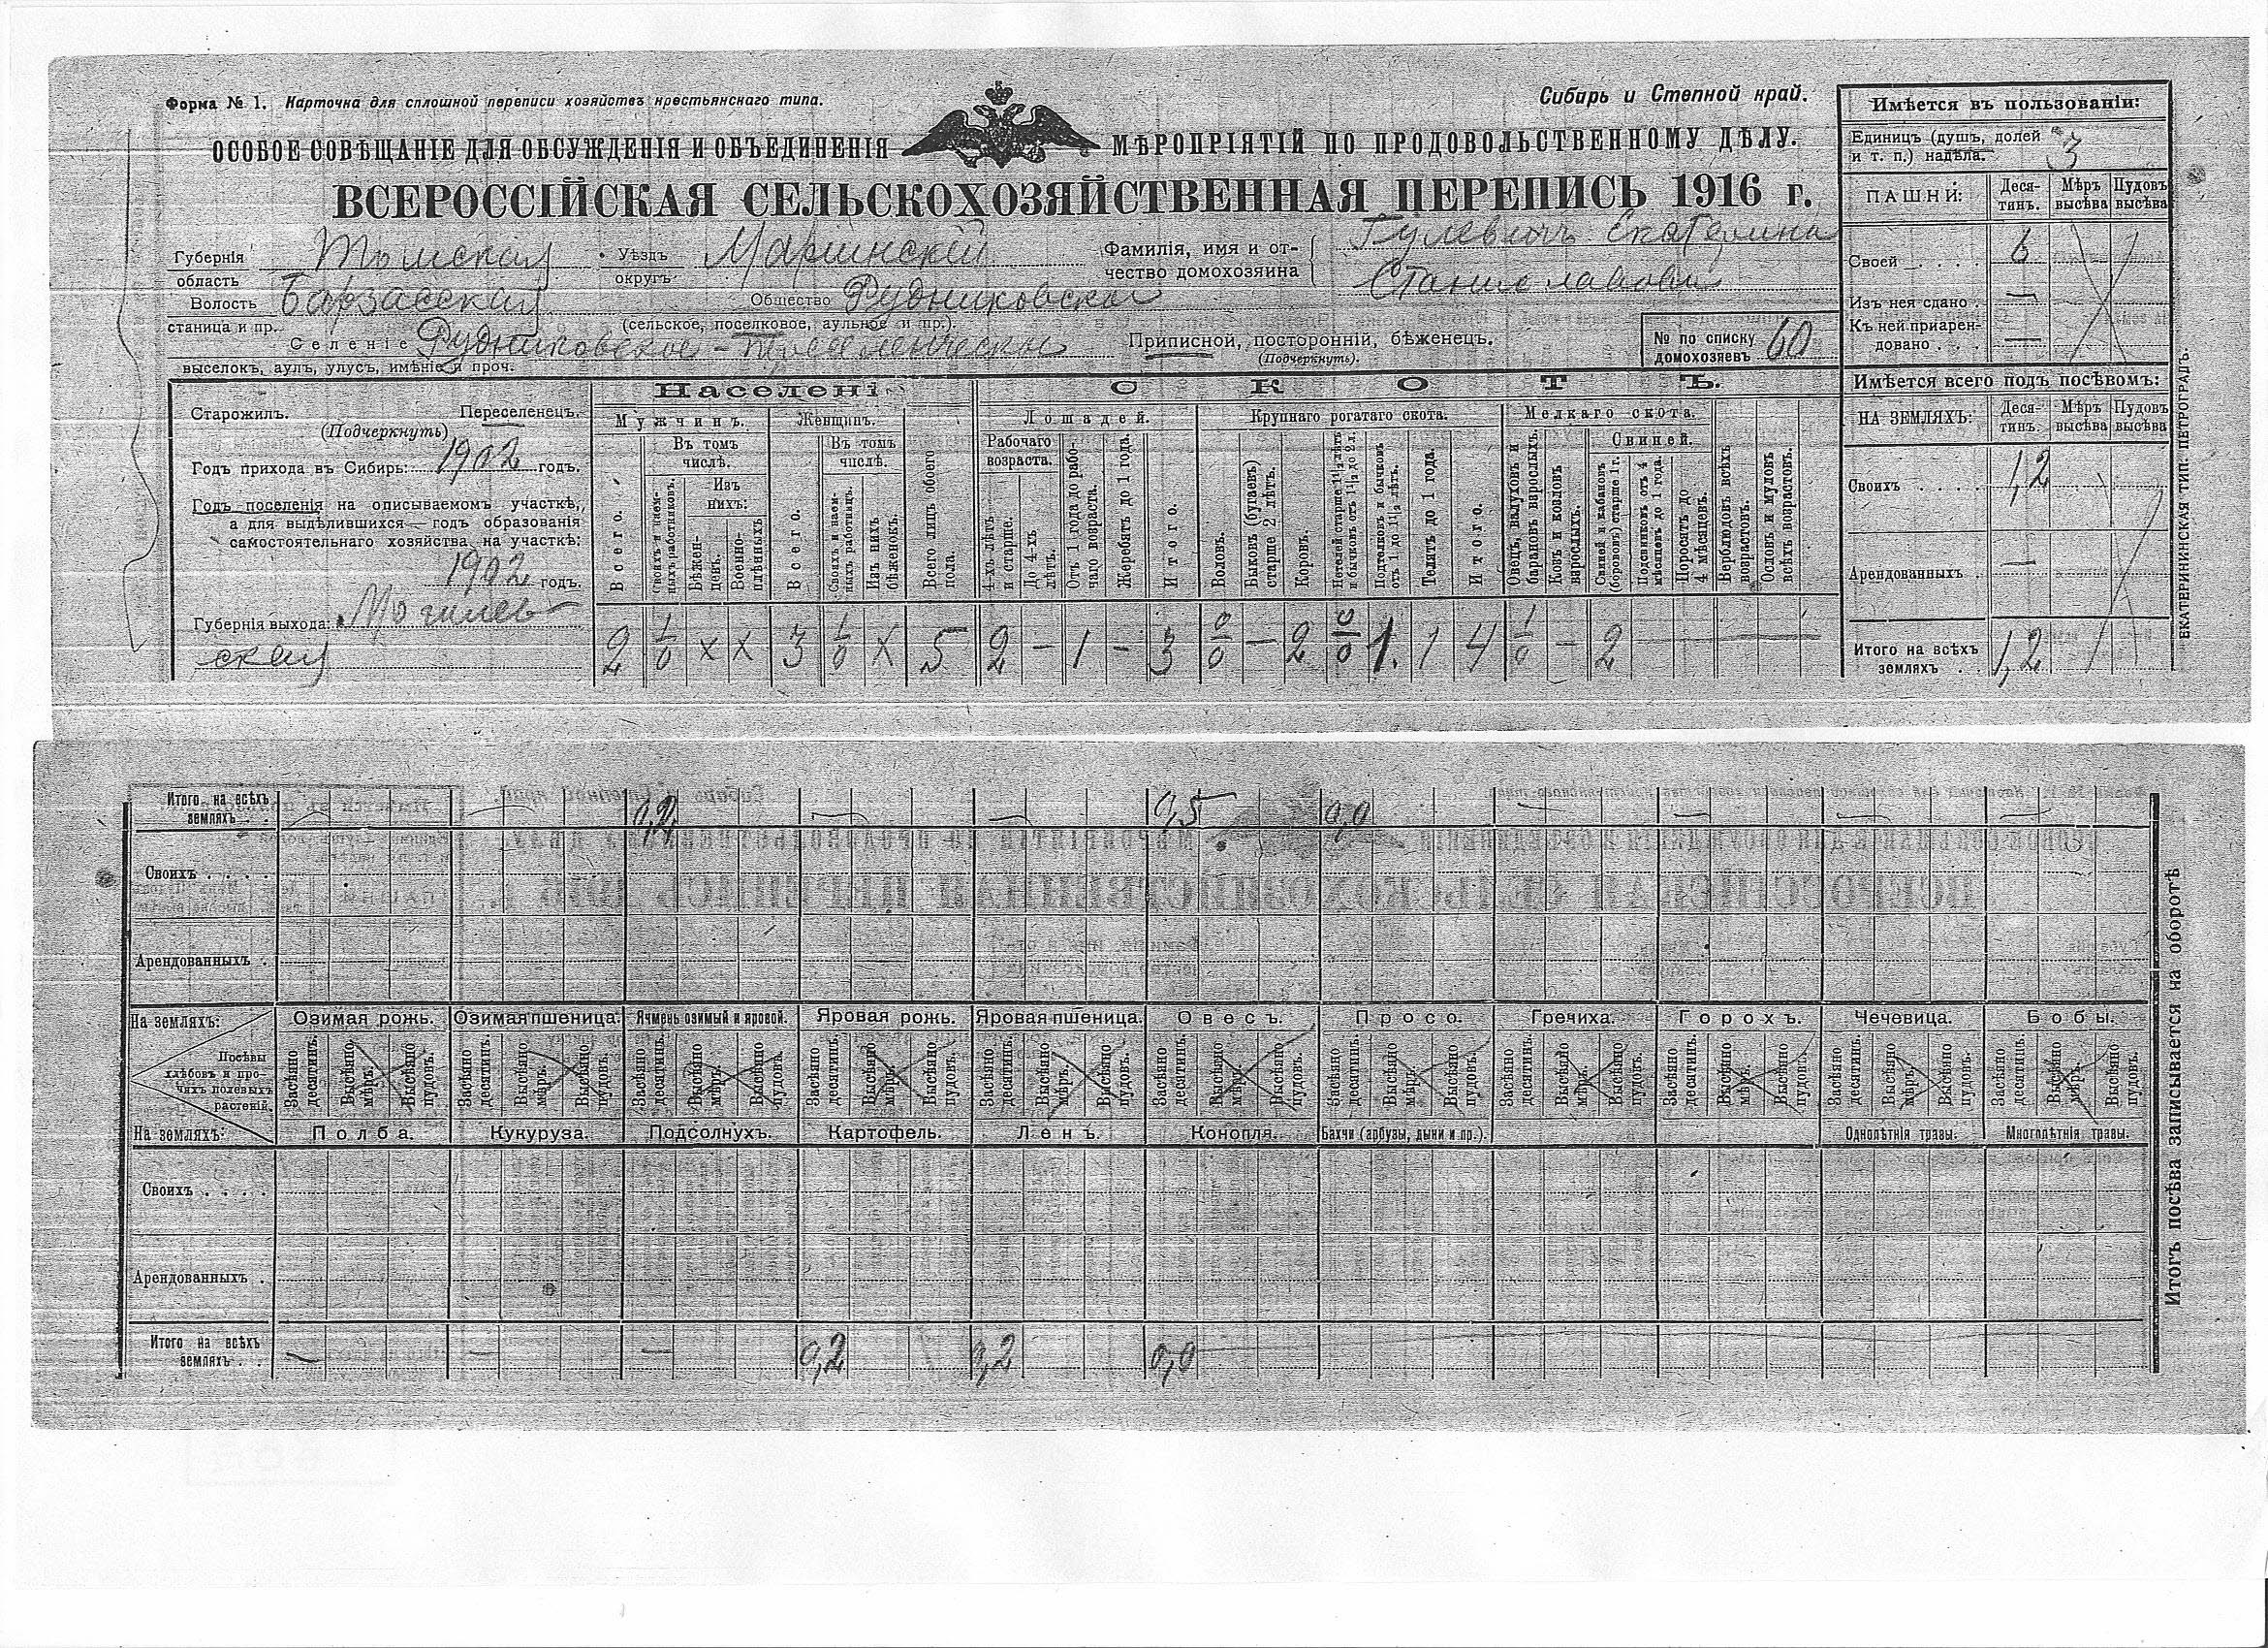 Форма № 1. Карточка для сплошной переписи хозяйствъ крестьянскаго типа.
Сибирь и Степной край.
ОСОБОЕ СОВѢЩАНІЕ ДЛЯ ОБСУЖДЕНІЯ И ОБЪЕДИНЕНІЯ МѢРОПРІЯТІЙ ПО ПРОДОВОЛЬСТВЕННОМУ ДѢЛУ.
ВСЕРОССІЙСКАЯ СЕЛЬСКОХОЗЯЙСТВЕННАЯ ПЕРЕПИСЬ 1916 г.
Губернія область Томская
Уѣздъ округъ Маріинскій
Фамилія, имя и отчество домохозяина Гулевичъ Екатерина
Станиславовн
Волость станица и пр. Барзасская
Общество Рудниковско
(сельское, поселковое, аульное и пр.).
Селеніе Рудниковское -
выселокъ, аулъ, улусъ, имѣніе и проч.
Приписной, посторонній, бѣженецъ.
(Подчеркнуть).
№ по списку домохозяевъ 60
Старожилъ. Переселенецъ.
(Подчеркнуть)
Годъ прихода въ Сибирь: 1902 годъ.
Годъ поселенія на описываемомъ участкѣ,
а для выдѣлившихся — годъ образованія
самостоятельнаго хозяйства на участкѣ:
1902 годъ.
Губернія выхода: Могилев
ская
Населеніе
Мужчинъ. Женщинъ.
Всего.
Въ томъ числѣ.
Своихъ и наемныхъ работниковъ.
Изъ нихъ:
Бѣженцевъ.
Военноплѣнныхъ
Всего.
Въ томъ числѣ.
Своихъ и наемныхъ работницъ.
Изъ нихъ бѣженокъ.
Всего лицъ обоего пола.
СКОТЪ.
Лошадей.
Рабочаго возраста.
4-хъ лѣтъ и старше.
До 4-хъ лѣтъ.
Отъ 1 года до рабочаго возраста.
Жеребятъ до 1 года.
Итого.
Крупнаго рогатаго скота.
Воловъ.
Быковъ (бугаевъ) старше 2 лѣтъ.
Коровъ.
Нетелей старше 1½ лѣтъ и бычковъ отъ 1½ до 2 л.
Подтелковъ и бычковъ отъ 1 до 1½ лѣтъ.
Телятъ до 1 года.
Итого.
Мелкаго скота.
Овецъ, валуховъ и барановъ взрослыхъ.
Козъ и козловъ взрослыхъ.
Свиней.
Свиней и кабановъ (борововъ) старше 1 г.
Подсвинковъ отъ 4 мѣсяцевъ до 1 года.
Поросятъ до 4 мѣсяцевъ.
Верблюдовъ всѣхъ возрастовъ.
Ословъ и муловъ всѣхъ возрастовъ.
2 1/0 × × 3 1/0 × 5 2 – 1 – 3 0/0 – 2 0/0 1. 1 4 1/0 – 2 —
Имѣется въ пользованіи:
Единицъ (душъ, долей и т. п.) надѣла. 3
ПАШНИ: Десятинъ. Мѣръ высѣва Пудовъ высѣва
Своей 6
Изъ нея сдано. —
Къ ней приарендовано —
Имѣется всего подъ посѣвомъ:
НА ЗЕМЛЯХЪ: Десятинъ. Мѣръ высѣва Пудовъ высѣва
Своихъ 1,2
Арендованныхъ —
Итого на всѣхъ земляхъ 1,2
ЕКАТЕРИНИНСКАЯ ТИП. ПЕТРОГРАДЪ.
Итого на всѣхъ земляхъ — — 0,2 — — 0,5 0,0 — — — —
Своихъ
Арендованныхъ
На земляхъ: Озимая рожь. Озимая пшеница. Ячмень озимый и яровой. Яровая рожь. Яровая пшеница. Овесъ. Просо. Гречиха. Горохъ. Чечевица. Бобы.
Посѣвы хлѣбовъ и прочихъ полевыхъ растеній.
Засѣяно десятинъ. Высѣяно мѣръ. Высѣяно пудовъ.
Засѣяно десятинъ. Высѣяно мѣръ. Высѣяно пудовъ.
Засѣяно десятинъ. Высѣяно мѣръ. Высѣяно пудовъ.
Засѣяно десятинъ. Высѣяно мѣръ. Высѣяно пудовъ.
Засѣяно десятинъ. Высѣяно мѣръ. Высѣяно пудовъ.
Засѣяно десятинъ. Высѣяно мѣръ. Высѣяно пудовъ.
Засѣяно десятинъ. Высѣяно мѣръ. Высѣяно пудовъ.
Засѣяно десятинъ. Высѣяно мѣръ. Высѣяно пудовъ.
Засѣяно десятинъ. Высѣяно мѣръ. Высѣяно пудовъ.
Засѣяно десятинъ. Высѣяно мѣръ. Высѣяно пудовъ.
Засѣяно десятинъ. Высѣяно мѣръ. Высѣяно пудовъ.
На земляхъ: Полба. Кукуруза. Подсолнухъ. Картофель. Ленъ. Конопля. Бахчи (арбузы, дыни и пр.). Однолѣтнія травы. Многолѣтнія травы.
Своихъ
Арендованныхъ
Итого на всѣхъ земляхъ — — — 0,2 0,2 0,0
Итогъ посѣва записывается на оборотѣ